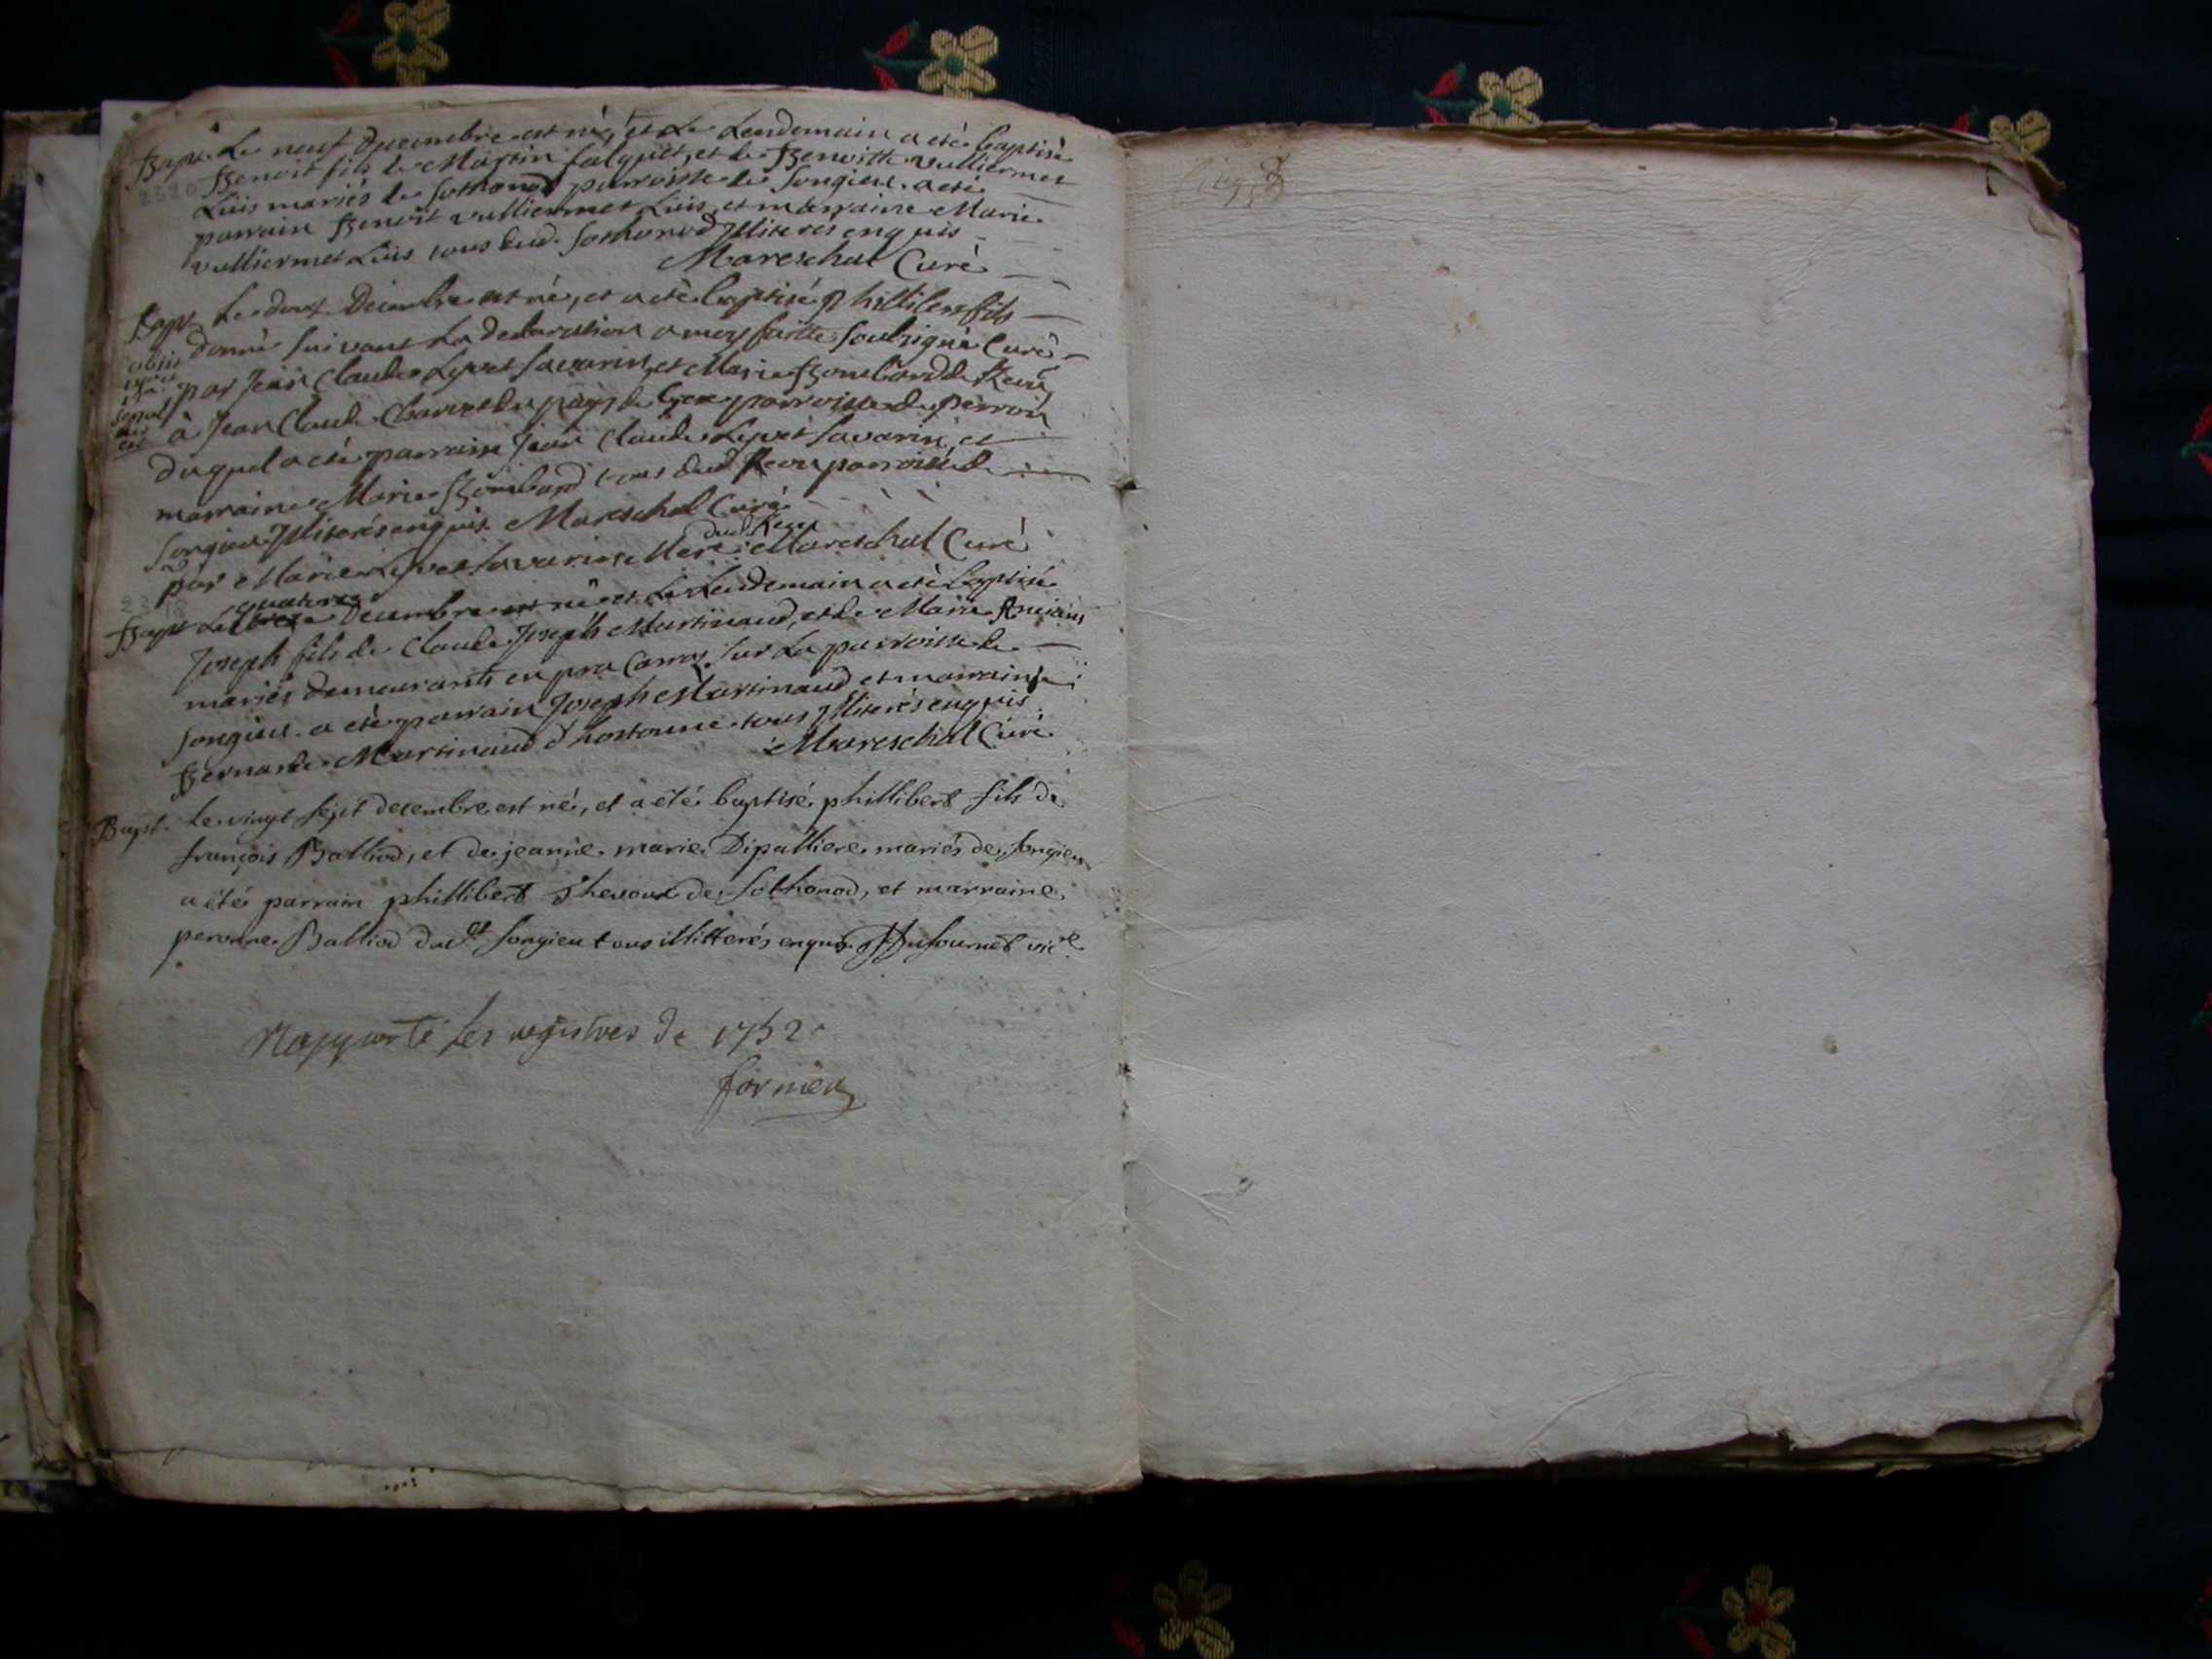 Bapt. Le neuf Decembre est né, et Le Lendemain a eté baptisé
Benoit fils de Martin falquet, et de Benoitte vulliermet
Luis mariés de Sothonod parroisse de Songieu. a eté
parrain Benoit vulliermet Luis, et marraine Marie
vulliermet Luis tous dud. Sothonod Illiterés enquis
Mareschal Curé
Bapt. Le douze Decembre est né, et a eté baptisé phillibert fils
donné suivant La Declaration a moy faitte soussigné Curé
par Jean Claude Lyvet Savarin, et Marie Bombard de
à Jean Claude Charvet du païs de Gex parroisse de
duquel a eté parrain Jean Claude Lyvet Savarin, et
marraine Marie Bombard tous dud parroisse de
Songieu Illiterés enquis Mareschal Curé
par Marie Lyvet Savarin Mere Mareschal Curé
quatorze
Bapt Le Decembre est né et Le Lendemain a eté baptisé
Joseph fils de Claude Joseph Martinaud, et de Marie
mariés demeurants en pra Carros sur La parroisse de
Songieu. a eté parrain Joseph Martinaud et marraine
Bernarde Martinaud d'hostonne tous Illiterés enquis
Mareschal Curé
Bapt. Le vingt sept decembre est né, et a été baptisé phillibert fils de
françois Balliod, et de jeanne marie Dipalliere mariés de Songieu
a été parrain phillibert Thevoux de Sothonod, et marraine
peronne Balliod dud.et Songieu tous illitterés enquis vic.re
Rapporté les registres de 1752